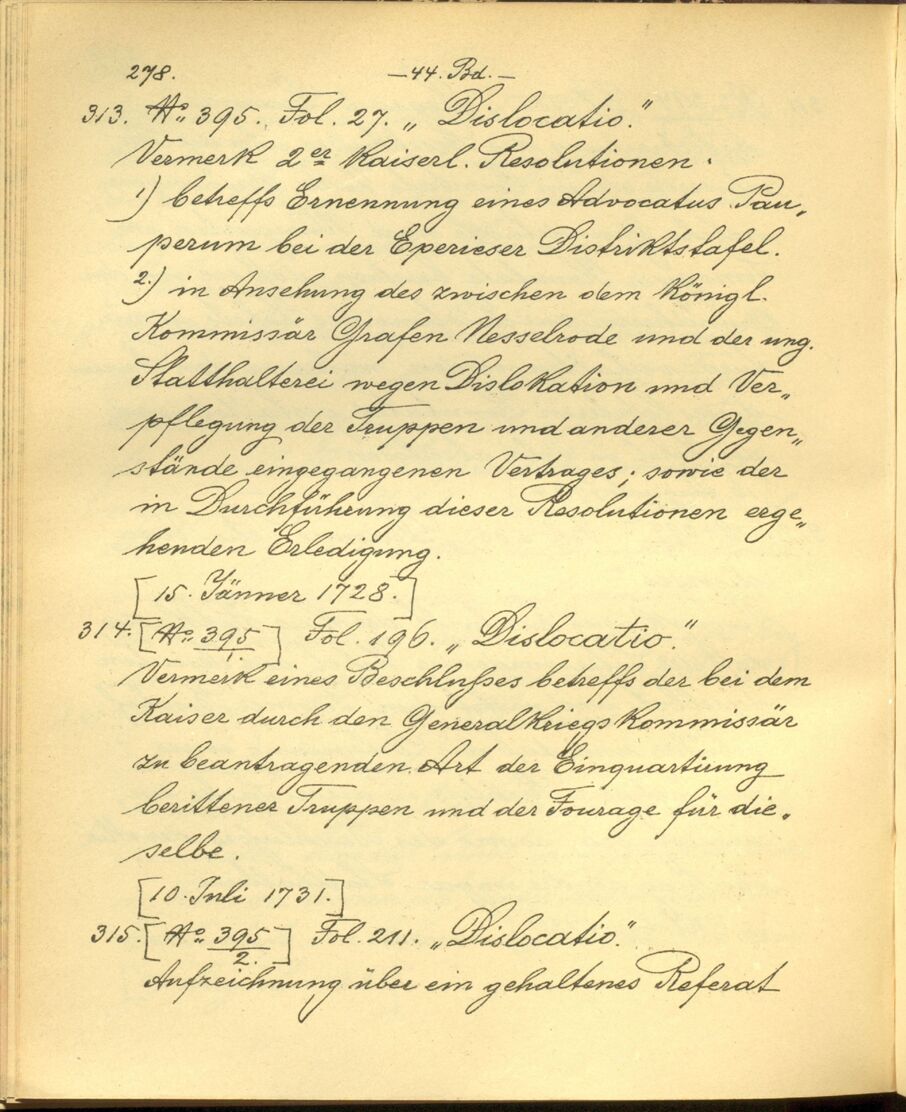 278.
—44. Bd.—
313. No. 395. Fol. 27. „Dislocatio."
Vermerk 2er Kaiserl. Resolutionen.
1) betreffs Ernennung eines Advocatus Pau„
perum bei der Eperieser Distriktstafel.
2.) in Ansehung des zwischen dem Königl.
Kommissär Grafen Nesselrode und der ung.
Statthalterei wegen Dislokation und Ver„
pflegung der Truppen und anderer Gegen„
stände eingegangenen Vertrages; sowie der
in Durchführung dieser Resolutionen erge„
henden Erledigung.
[15. Jänner 1728.]
314. [No. 395/1.] Fol. 196. „Dislocatio."
Vermerk eines Beschlußes betreffs der bei dem
Kaiser durch den Generalkriegskommissär
zu beantragenden Art der Einquartirung
berittener Truppen und der Fourage für die„
selbe.
[10. Juli 1731.]
315. [No. 395/2.] Fol. 211. „Dislocatio."
Aufzeichnung über ein gehaltenes Referat